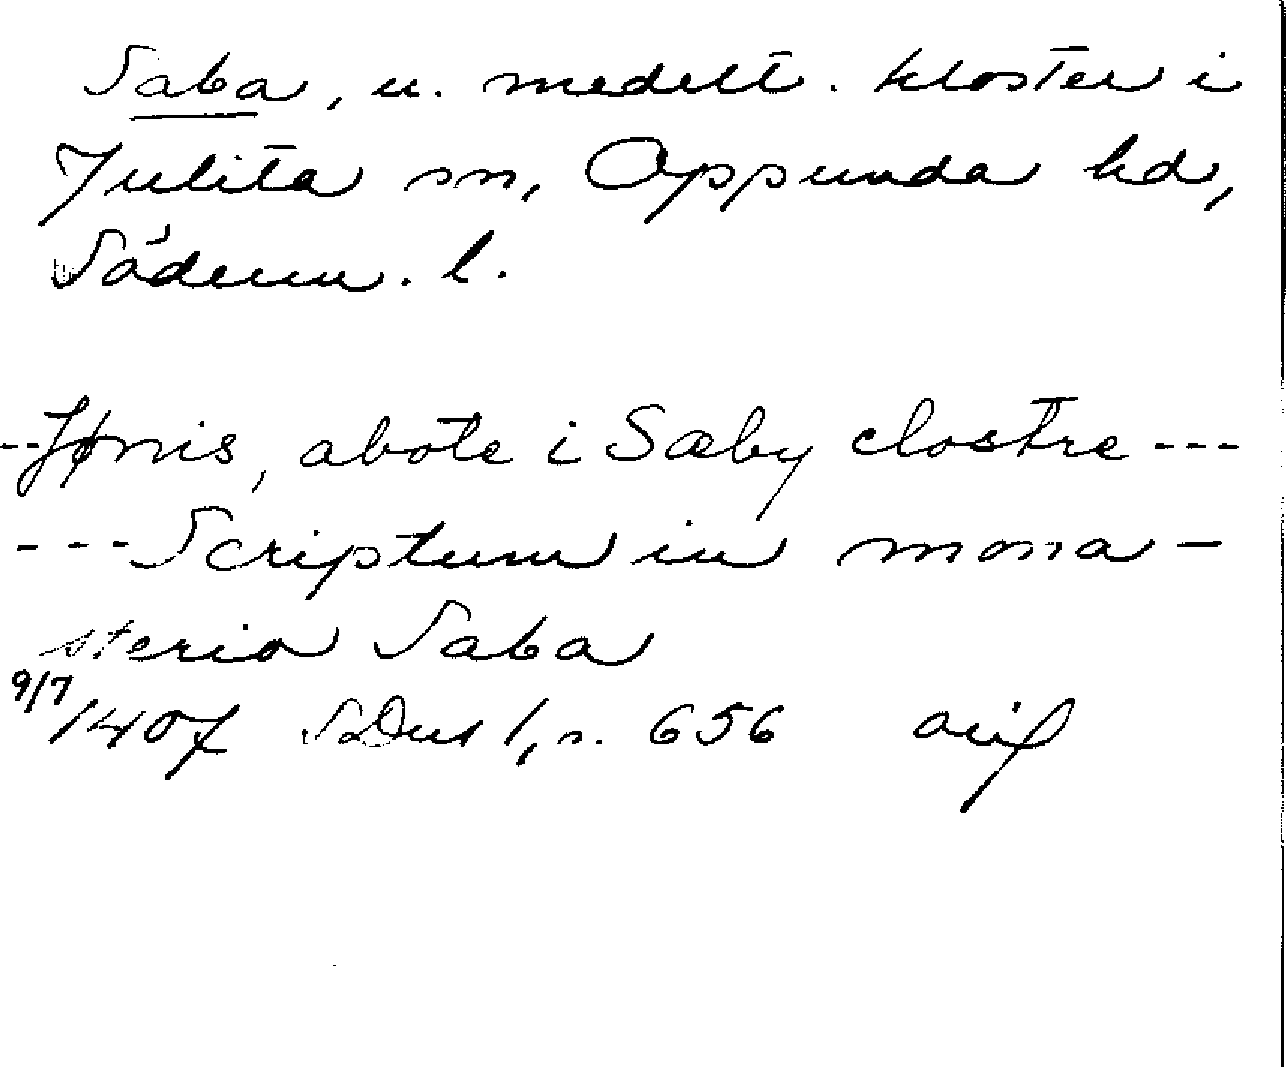 Saba, n. medelt. kloster i
Julita sn, Oppunda hd,
Söderm. l.
---Jønis, abote i Sæby clostre---
---Scriptum in mona-
sterio Saba
9/7 1407 SDns 1, s. 656 orig